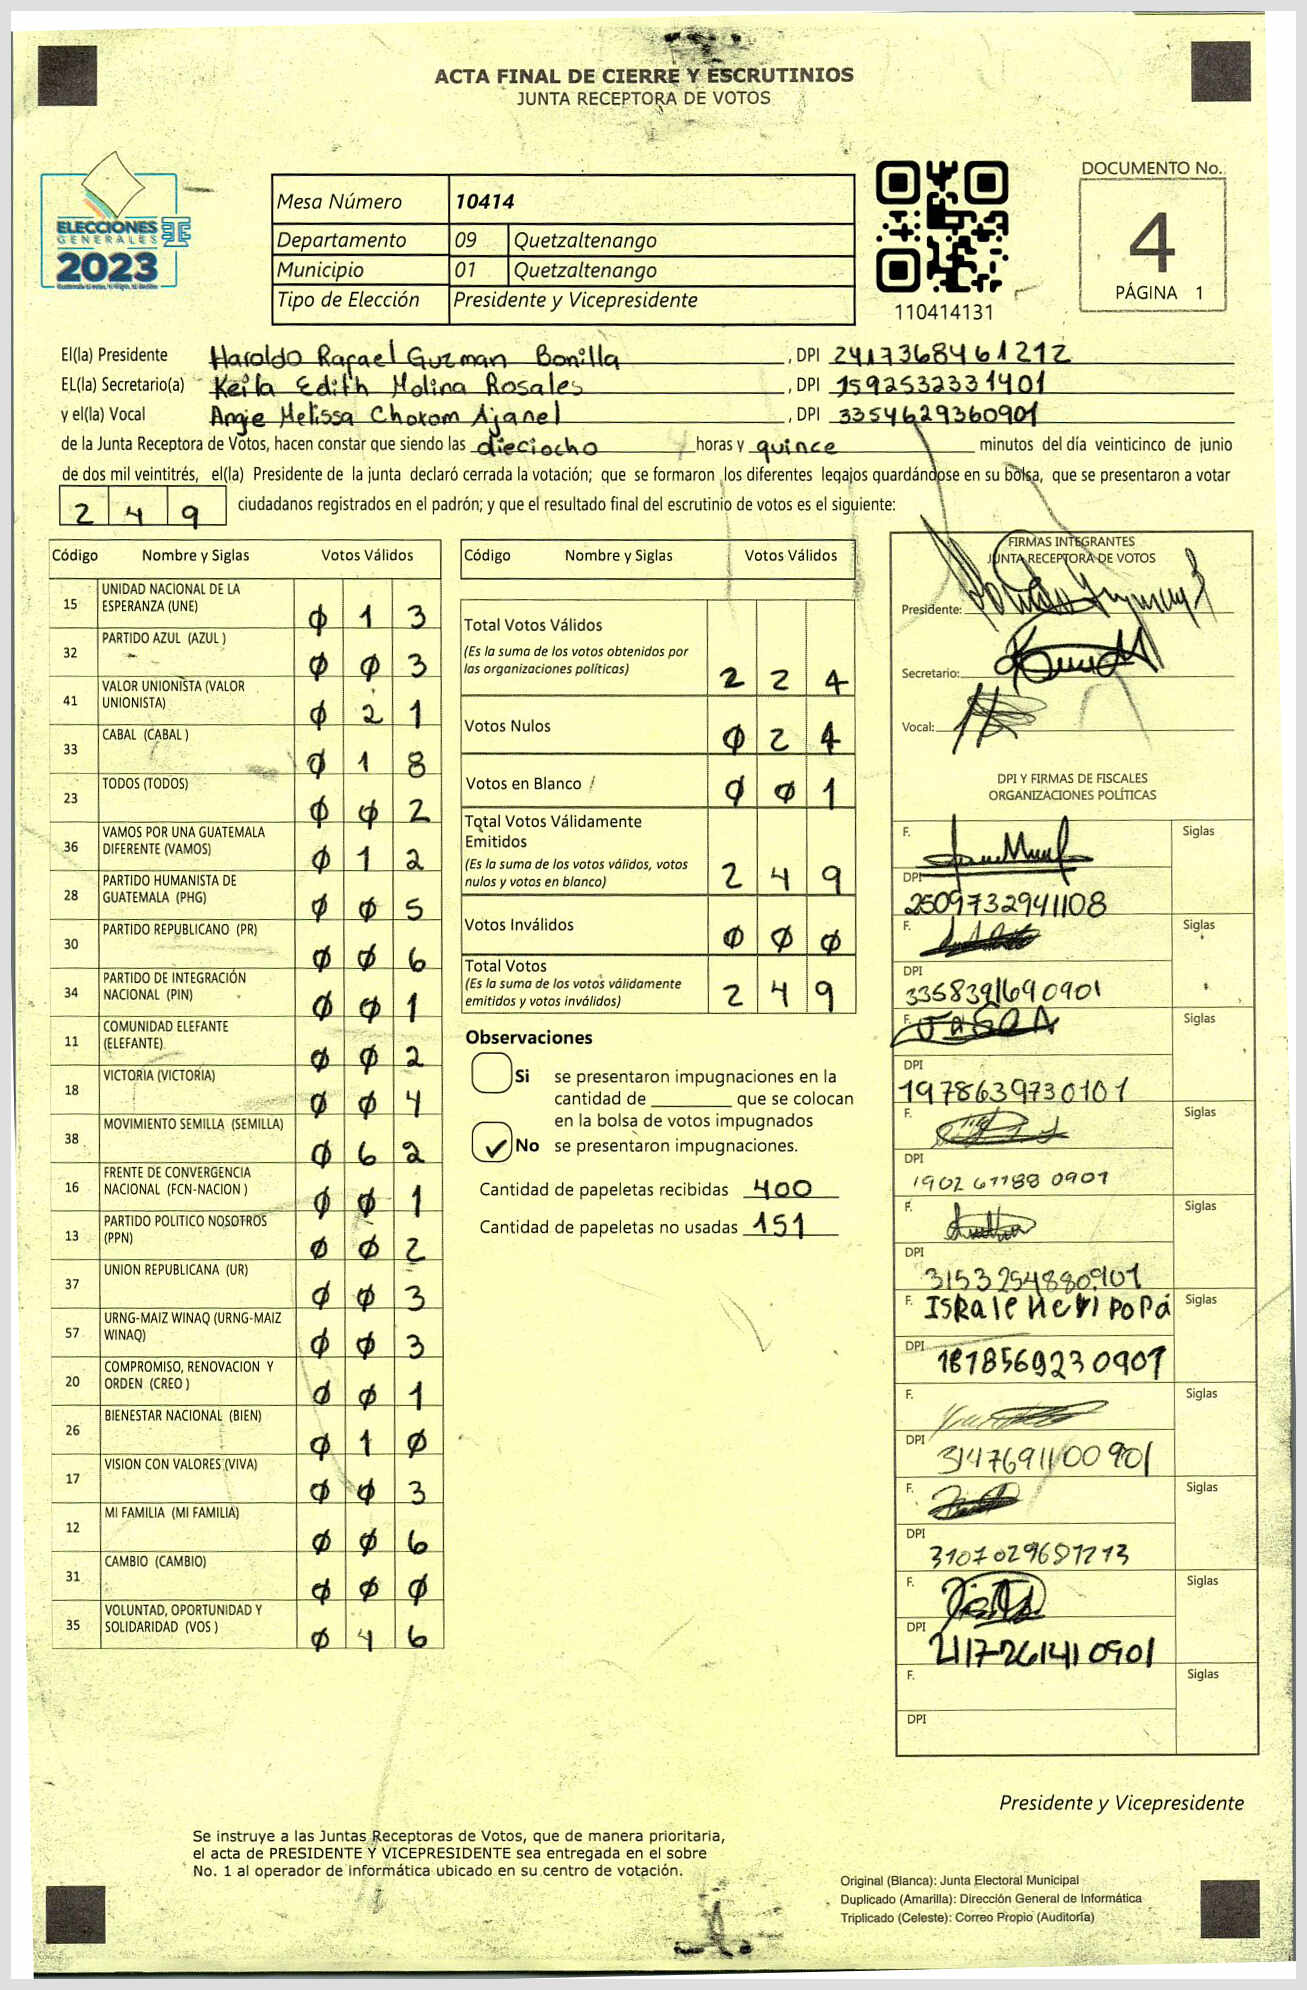 ACTA FINAL DE CIERRE Y ESCRUTINIOS
JUNTA RECEPTORA DE VOTOS
ELECCIONES
GENERALES
2023
Mesa Número 10414
Departamento 09 Quetzaltenango
Municipio 01 Quetzaltenango
Tipo de Elección Presidente y Vicepresidente
110414131
DOCUMENTO No.
4
PÁGINA 1
El(la) Presidente Haroldo Rafael Guzman Bonilla, DPI 2417368461212
EL(la) Secretario(a) Keila Edith Molina Rosales, DPI 1592532331401
y el(la) Vocal Angie Melissa Chokom Ajanel, DPI 3354629360901
de la Junta Receptora de Votos, hacen constar que siendo las dieciocho horas y quince minutos del día veinticinco de junio
de dos mil veintitrés, el(la) Presidente de la junta declaró cerrada la votación; que se formaron los diferentes legajos guardándose en su bolsa, que se presentaron a votar
249 ciudadanos registrados en el padrón; y que el resultado final del escrutinio de votos es el siguiente:
Código Nombre y Siglas Votos Válidos
15 UNIDAD NACIONAL DE LA ESPERANZA (UNE) 0 1 3
32 PARTIDO AZUL (AZUL ) 0 0 3
41 VALOR UNIONISTA (VALOR UNIONISTA) 0 2 1
33 CABAL (CABAL ) 0 1 8
23 TODOS (TODOS) 0 0 2
36 VAMOS POR UNA GUATEMALA DIFERENTE (VAMOS) 0 1 2
28 PARTIDO HUMANISTA DE GUATEMALA (PHG) 0 0 5
30 PARTIDO REPUBLICANO (PR) 0 0 6
34 PARTIDO DE INTEGRACIÓN NACIONAL (PIN) 0 0 1
11 COMUNIDAD ELEFANTE (ELEFANTE) 0 0 2
18 VICTORIA (VICTORIA) 0 0 4
38 MOVIMIENTO SEMILLA (SEMILLA) 0 6 2
16 FRENTE DE CONVERGENCIA NACIONAL (FCN-NACION ) 0 0 1
13 PARTIDO POLITICO NOSOTROS (PPN) 0 0 2
37 UNION REPUBLICANA (UR) 0 0 3
57 URNG-MAIZ WINAQ (URNG-MAIZ WINAQ) 0 0 3
20 COMPROMISO, RENOVACION Y ORDEN (CREO ) 0 0 1
26 BIENESTAR NACIONAL (BIEN) 0 1 0
17 VISION CON VALORES (VIVA) 0 0 3
12 MI FAMILIA (MI FAMILIA) 0 0 6
31 CAMBIO (CAMBIO) 0 0 0
35 VOLUNTAD, OPORTUNIDAD Y SOLIDARIDAD (VOS ) 0 4 6
Código Nombre y Siglas Votos Válidos
Total Votos Válidos 2 2 4
(Es la suma de los votos obtenidos por
las organizaciones políticas)
Votos Nulos 0 2 4
Votos en Blanco 0 0 1
Total Votos Válidamente
Emitidos
(Es la suma de los votos válidos, votos
nulos y votos en blanco) 2 4 9
Votos Inválidos 0 0 0
Total Votos
(Es la suma de los votos válidamente
emitidos y votos inválidos) 2 4 9
Observaciones
Si se presentaron impugnaciones en la
cantidad de ________ que se colocan
en la bolsa de votos impugnados
No se presentaron impugnaciones.
Cantidad de papeletas recibidas 400
Cantidad de papeletas no usadas 151
FIRMAS INTEGRANTES
JUNTA RECEPTORA DE VOTOS
Presidente:
Secretario:
Vocal:
DPI Y FIRMAS DE FISCALES
ORGANIZACIONES POLÍTICAS
F. Siglas
DPI 2509732941108
F. Siglas
DPI 3358391690901
F. Siglas
DPI 1978639730101
F. Siglas
DPI 1902 61188 0901
F. Siglas
DPI 3153254880901
F. Siglas
DPI 1878569230901
F. Siglas
DPI 3147691100901
F. Siglas
DPI 3107029681213
F. Siglas
DPI 2117261410901
F. Siglas
DPI
Presidente y Vicepresidente
Se instruye a las Juntas Receptoras de Votos, que de manera prioritaria,
el acta de PRESIDENTE Y VICEPRESIDENTE sea entregada en el sobre
No. 1 al operador de informática ubicado en su centro de votación.
Original (Blanca): Junta Electoral Municipal
Duplicado (Amarilla): Dirección General de Informática
Triplicado (Celeste): Correo Propio (Auditoría)